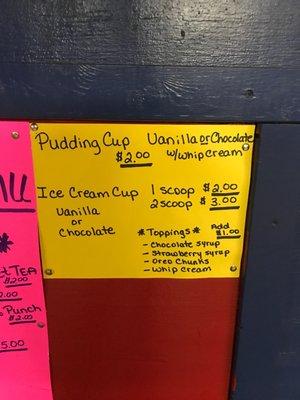 Pudding Cup Vanilla or Chocolate
$2.00 w/whip cream
Ice Cream Cup 1 scoop $2.00
Vanilla 2 scoop $3.00
or
Chocolate
*Toppings* Add $1.00
- Chocolate syrup
- Strawberry syrup
- Oreo Chunks
- Whip cream
Tea
$2.00
2.00
Punch
$2.00
5.00